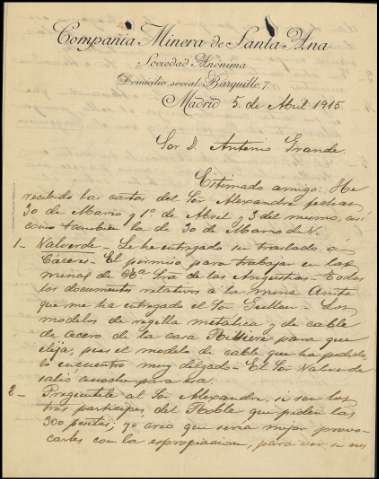 Compañia Minera de Santa Ana
Sociedad Anónima
Domicilio social Barquillo 7.
Madrid 5 de Abril 1915
Sor D. Antonio Grande
Estimado amigo: He
recibido las cartas del Sor Alexandre fechas
30 de Marzo y 1º de Abril y 3 del mismo, así
como tambien la de 30 de Marzo de V.
1- Valverde - Le he entregado su traslado a
Cáceres - El permiso para trabajar en las
minas de Nª Sra de las Angustias - Todos
los documentos relativos a la mina Anita
que me ha entregado el Sor Guillen - Los
modelos de rejilla metálica y de cable
de acero de la casa Riviere para que
elija; pues el modelo de cable que ha pedido
lo encuentro muy delgado - El Sor Valverde
salió anoche para esa.
2- Preguntele al Sor Alexandre, si son los
tres participes del Roble que piden las
300 pesetas; yo creo que seria mejor provo-
carles con la expropiacion, para ver si nos